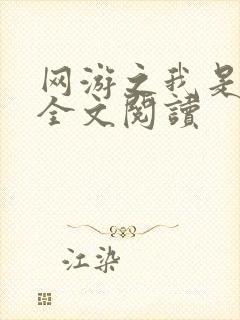 网游之我是
全文閱讀
江染